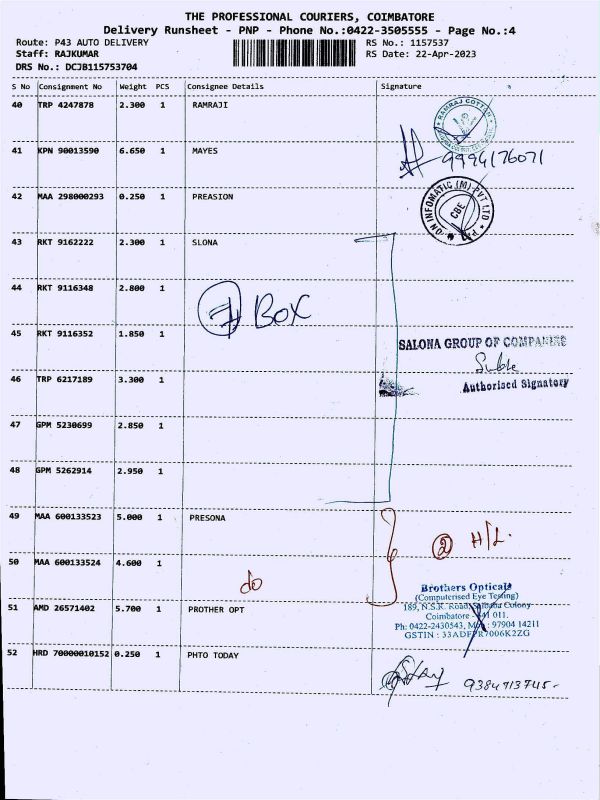 THE PROFESSIONAL COURIERS, COIMBATORE
Delivery Runsheet - PNP - Phone No.:0422-3505555 - Page No.:4
Route: P43 AUTO DELIVERY RS No.: 1157537
Staff: RAJKUMAR RS Date: 22-Apr-2023
DRS No.: DCJB115753704
S No Consignment No Weight PCS Consignee Details Signature
40 TRP 4247878 2.300 1 RAMRAJI
RAMRAJ COTTON
41 KPN 90013590 6.650 1 MAYES
9994176071
42 MAA 298000293 0.250 1 PREASION
ON INFOMATIC (M) PVT LTD
CBE
43 RKT 9162222 2.300 1 SLONA
44 RKT 9116348 2.800 1
7 Box
45 RKT 9116352 1.850 1
SALONA GROUP OF COMPANIES
46 TRP 6217189 3.300 1
Authorised Signatory
47 GPM 5230699 2.850 1
48 GPM 5262914 2.950 1
49 MAA 600133523 5.000 1 PRESONA
2 H/L.
50 MAA 600133524 4.600 1
do
Brothers Opticals
(Computerised Eye Testing)
51 AMD 26571402 5.700 1 PROTHER OPT
189, N.S.R. Road, Saibaba Colony
Coimbatore - 641 011.
Ph: 0422-2430543, Mob : 97904 14211
GSTIN : 33ADFPR7006K2ZG
52 HRD 70000010152 0.250 1 PHTO TODAY
9384713745-